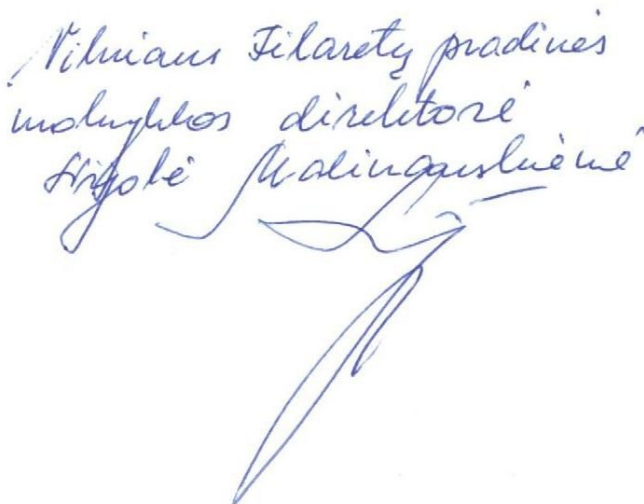 Vilniaus Filaretų pradinės
mokyklos direktorė
Malinauskienė